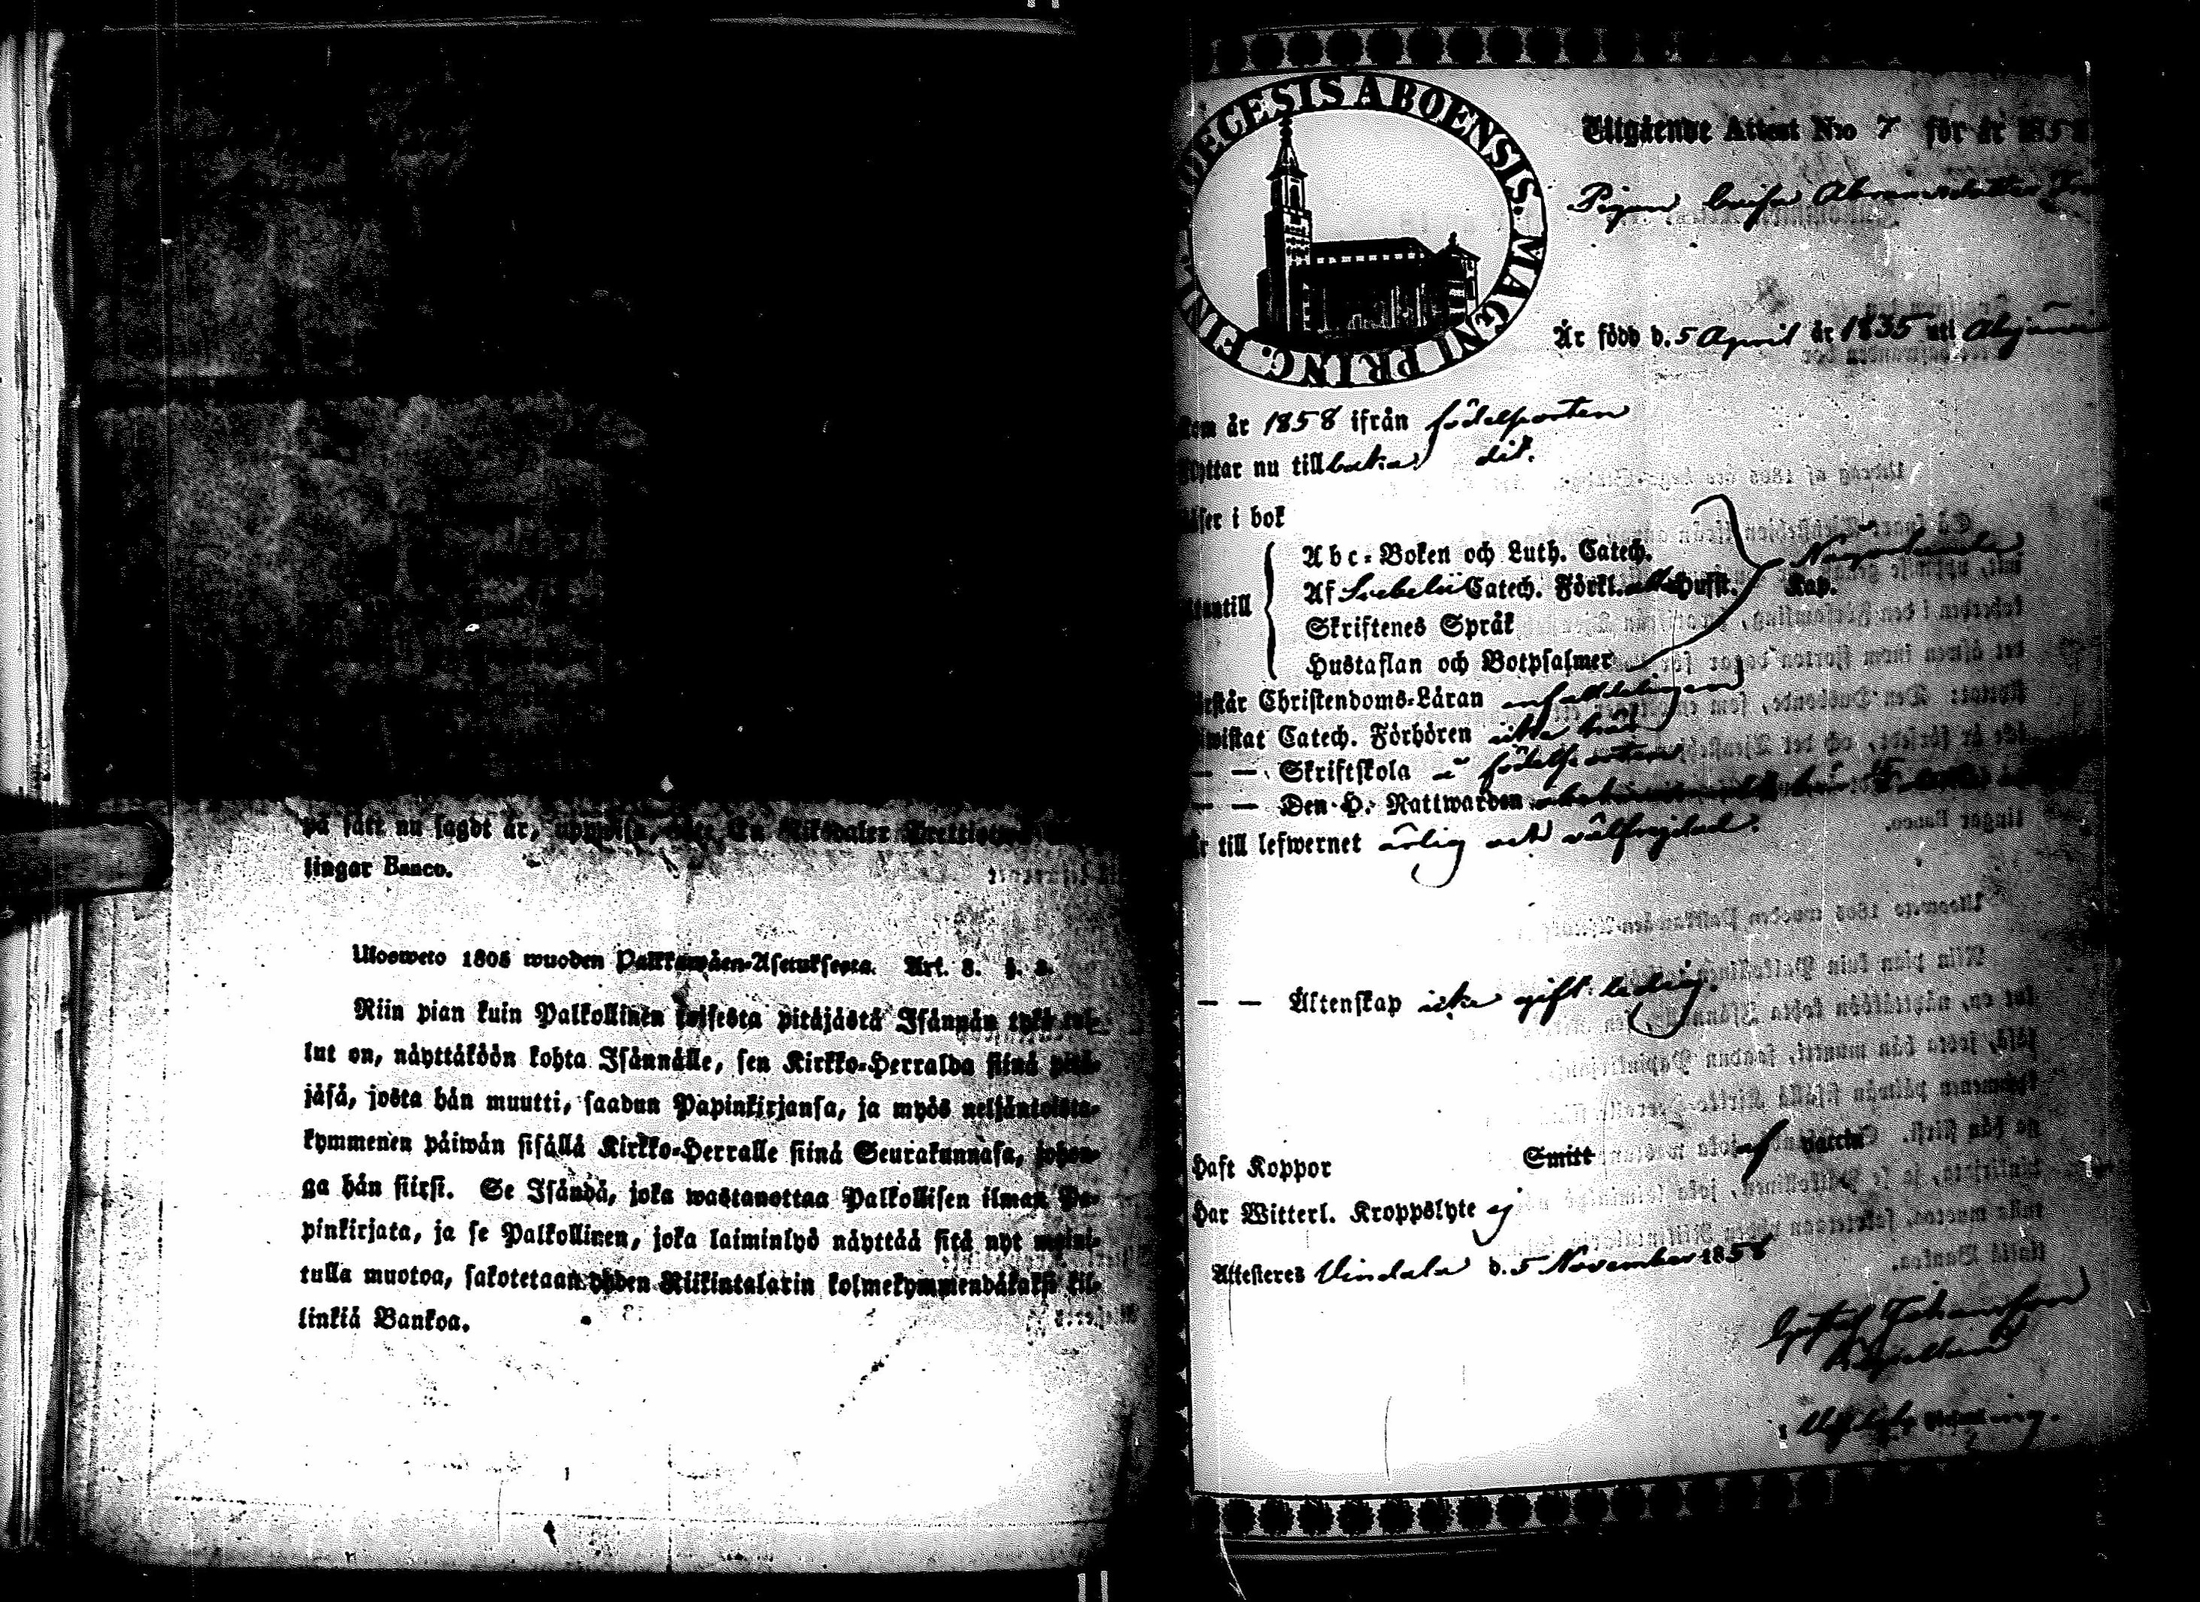 på sätt nu sagdt är, En Riksdaler
lingar Banco.
Ulosweto 1805 wuoden Palkkawäen-Asetuksesta. Art. 8. §. 2.
Niin pian kuin Palkollinen toisesta pitäjästä Isännän tykö tul-
lut on, näyttäköön kohta Isännälle, sen Kirkko-Herralda siinä pitä-
jäsä, josta hän muutti, saadun Papinkirjansa, ja myös neljäntoista-
kymmenen päiwän sisällä Kirkko-Herralle siinä Seurakunnasa, johon-
ga hän siirsi. Se Isändä, joka wastanottaa Palkollisen ilman Pa-
pinkirjata, ja se Palkollinen, joka laiminlyö näyttää sitä nyt maini-
tulla muotoa, sakotetaan yhden Riikintalarin kolmekymmendäkaksi kil-
linkiä Bankoa.
DIOECESIS ABOENSIS. MAGNI PRINC. FINL.
Utgående Attest N:o 7 för år 185
Pigan Lovisa Abramsdotter
Är född d. 5 April år 1835 uti
kom år 1858 ifrån födelseorten
flyttar nu tillbaka dit.
läser i bok
utantill
Abc-Boken och Luth. Catech.
Af Svebelii Catech. Förkl. Hufst. Kap.
Skriftenes Språk
Hustaflan och Botpsalmer
Nöjaktande
förstår Christendoms-Läran enfaldeligen
bewistat Catech. Förhören icke här
— — Skriftskola i födelseorten
— — Den H. Nattwarden
är till lefwernet ärlig och välfrejdad.
— — Äktenskap icke gift. ledig.
Haft Koppor Smitt af Vaccin
Har Witterl. Kroppslyte ej
Attesteres Vindala d. 5 November 1858
Gustaf Johansson